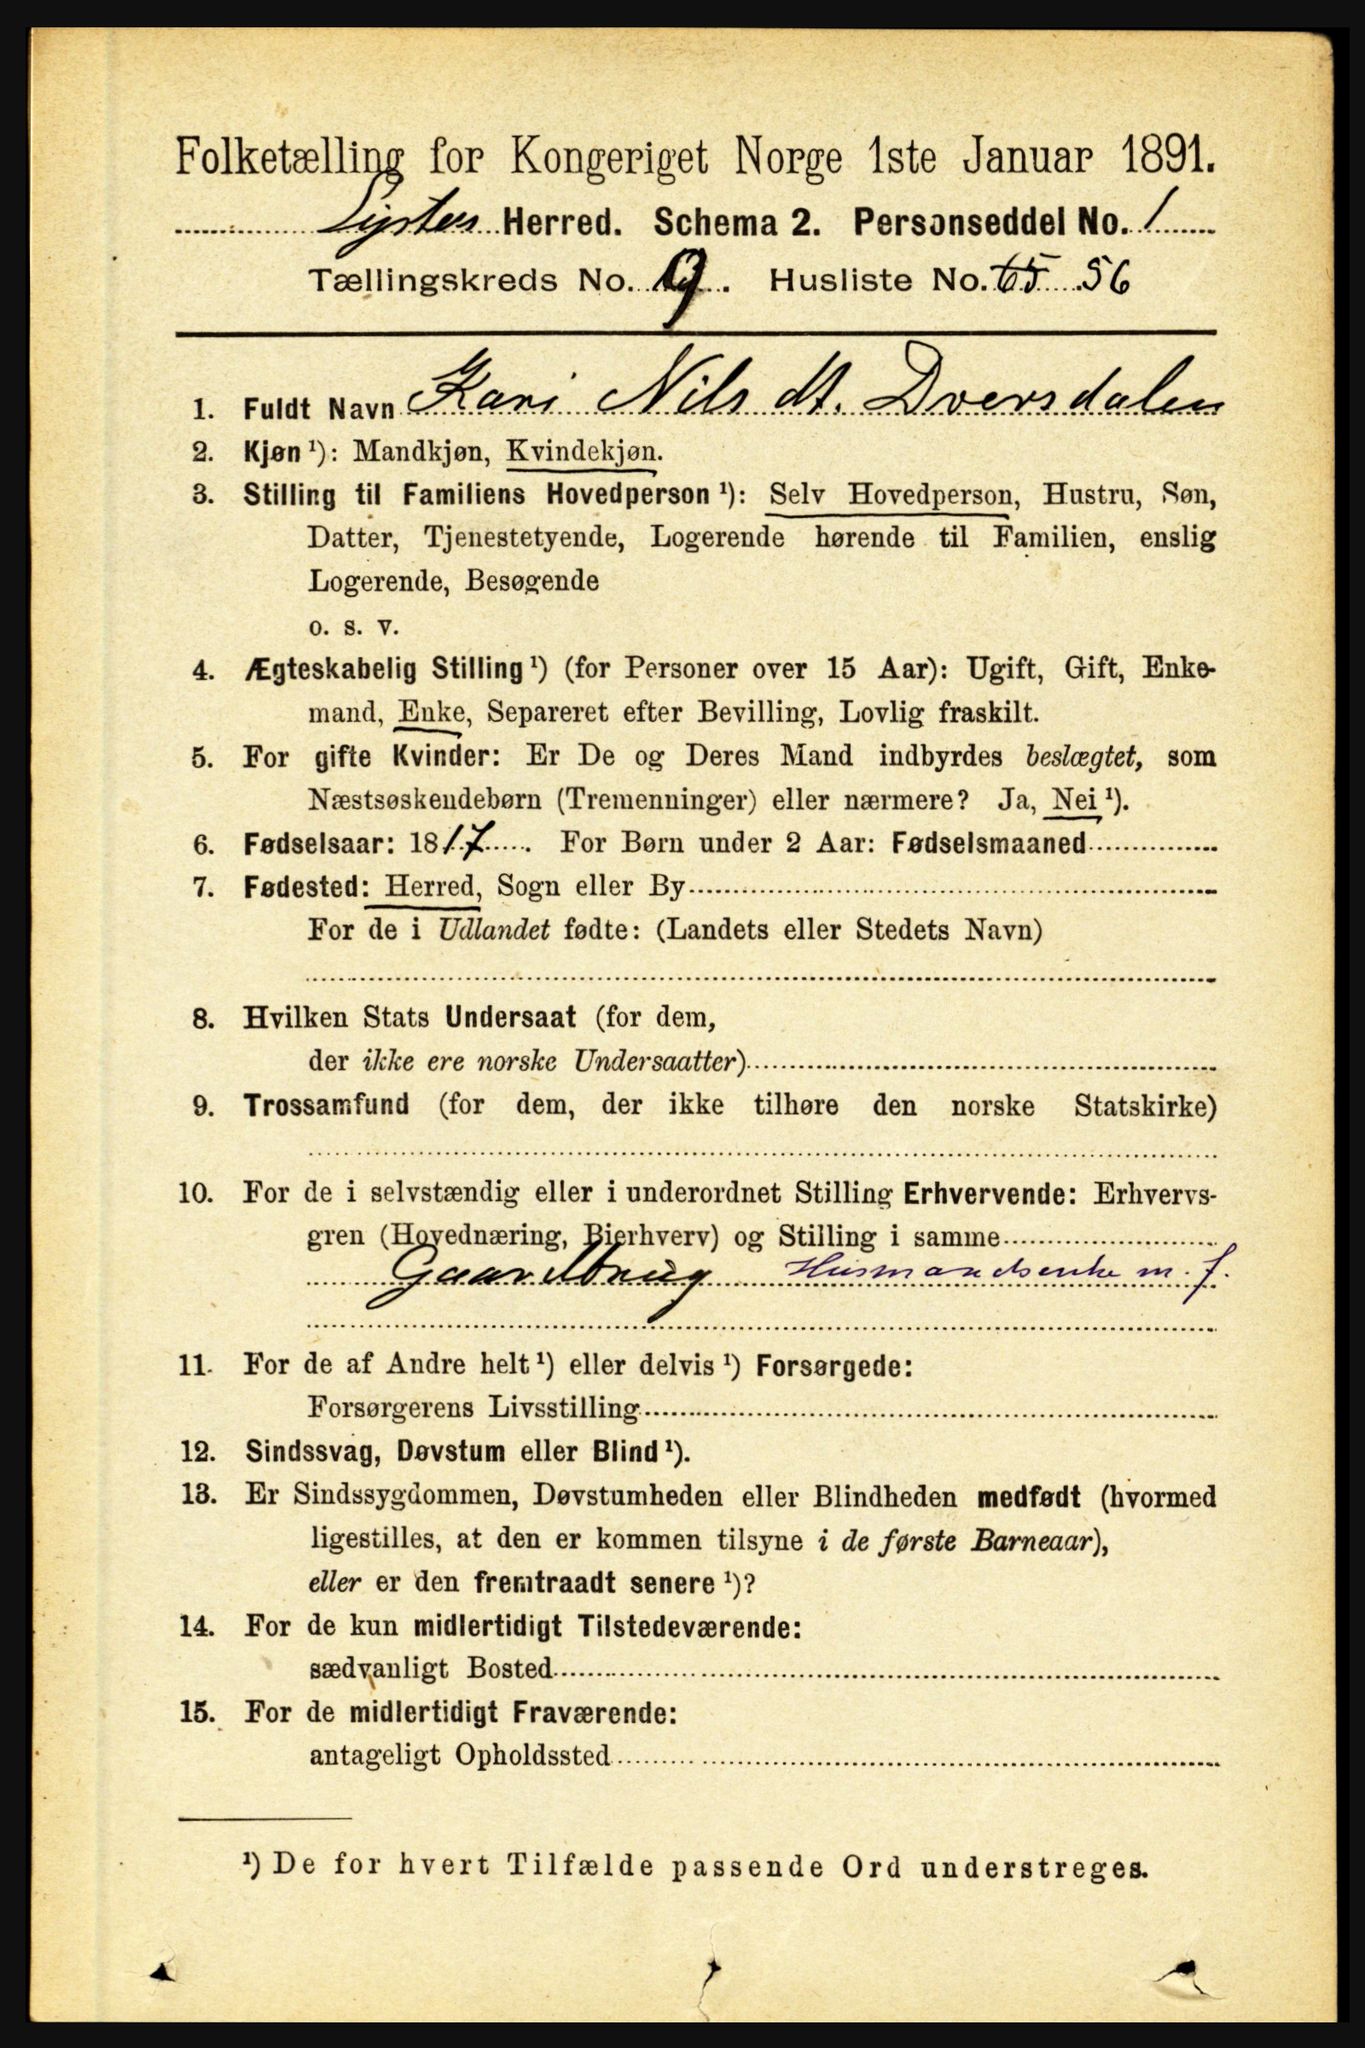 Folketælling for Kongeriget Norge 1ste Januar 1891.
Lyster Herred. Schema 2. Personseddel No. 1
Tællingskreds No. 9. Husliste No. 65 56
1. Fuldt Navn Kari Nilsdt. Dversdalen
2. Kjøn ¹): Mandkjøn, Kvindekjøn.
3. Stilling til Familiens Hovedperson ¹): Selv Hovedperson, Hustru, Søn,
Datter, Tjenestetyende, Logerende hørende til Familien, enslig
Logerende, Besøgende
o. s. v.
4. Ægteskabelig Stilling ¹) (for Personer over 15 Aar): Ugift, Gift, Enke-
mand, Enke, Separeret efter Bevilling, Lovlig fraskilt.
5. For gifte Kvinder: Er De og Deres Mand indbyrdes beslægtet, som
Næstsøskendebørn (Tremenninger) eller nærmere? Ja, Nei ¹).
6. Fødselsaar: 1817. For Børn under 2 Aar: Fødselsmaaned
7. Fødested: Herred, Sogn eller By
For de i Udlandet fødte: (Landets eller Stedets Navn)
8. Hvilken Stats Undersaat (for dem,
der ikke ere norske Undersaatter)
9. Trossamfund (for dem, der ikke tilhøre den norske Statskirke)
10. For de i selvstændig eller i underordnet Stilling Erhvervende: Erhvervs-
gren (Hovednæring, Bierhverv) og Stilling i samme
Gaardbrug Husmandsenke m. j.
11. For de af Andre helt ¹) eller delvis ¹) Forsørgede:
Forsørgerens Livsstilling
12. Sindssvag, Døvstum eller Blind ¹).
13. Er Sindssygdommen, Døvstumheden eller Blindheden medfødt (hvormed
ligestilles, at den er kommen tilsyne i de første Barneaar),
eller er den fremtraadt senere ¹)?
14. For de kun midlertidigt Tilstedeværende:
sædvanligt Bosted
15. For de midlertidigt Fraværende:
antageligt Opholdssted
¹) De for hvert Tilfælde passende Ord understreges.